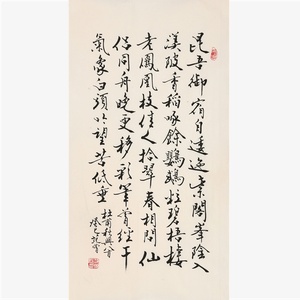 昆吾御宿自逶迤紫閣峯陰入
渼陂香稻啄餘鸚鵡粒碧梧棲
老鳳凰枝佳人拾翠春相問仙
侶同舟晚更移彩筆曾經干
氣象白頭吟望苦低垂
杜甫秋興